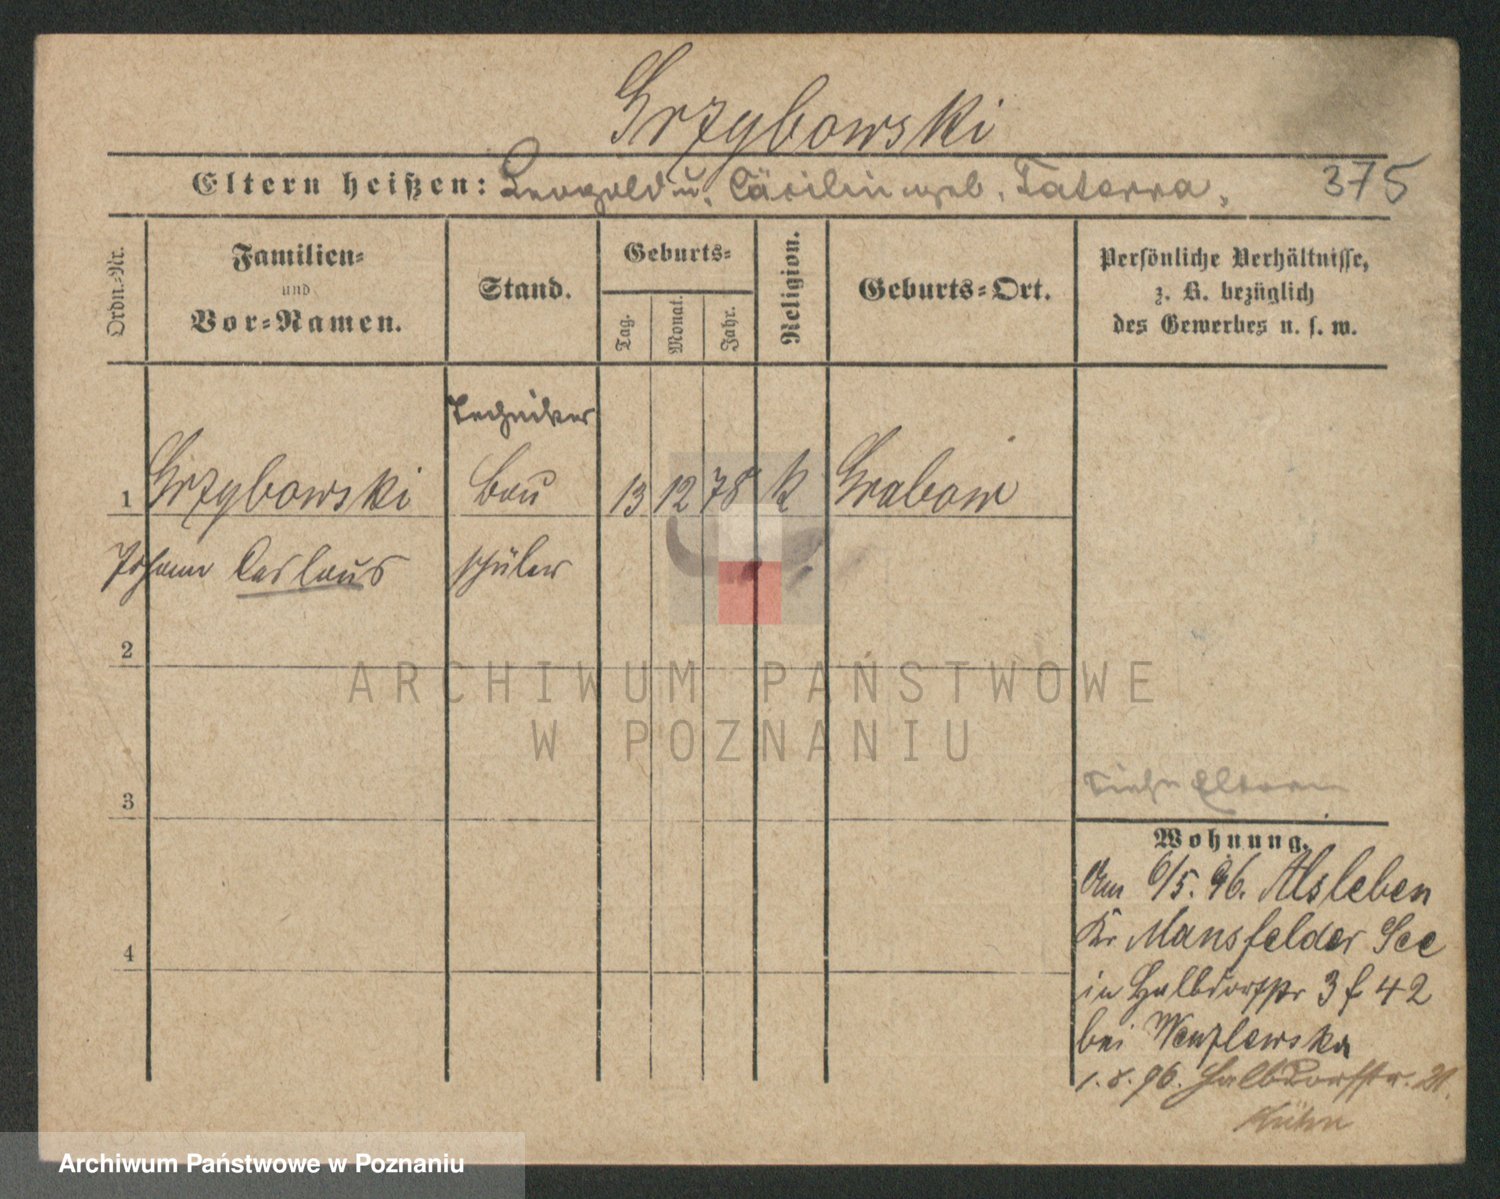 Grzybowski
Eltern heißen: Leopold u. Cäcilie geb. Tatarra, 375
Ordn.-Nr.
Familien-
und
Vor-Namen.
Stand.
Geburts-
Tag.
Monat.
Jahr.
Religion.
Geburts-Ort.
Persönliche Verhältnisse,
z. B. bezüglich
des Gewerbes u. s. w.
Techniker
1 Grzybowski Bau 13 12 78 k Grabow
Johann Caslaus schüler
2
3
4
Siehe Eltern
Wohnung.
Am 6/5. 96. Alsleben
Kr. Mansfelder See
in Halbdorfstr 3 f 42
bei Wenzlewska
1.8.96. Halbdorfstr. 21.
Kühn
ARCHIWUM PAŃSTWOWE
W POZNANIU
Archiwum Państwowe w Poznaniu